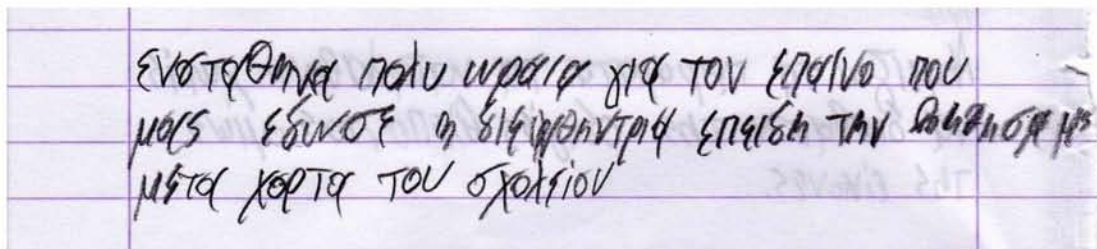 ενσταθηνα πολυ ωραια για τον επαινο που
μας εδυνσε η διευθηντρια επειδη την βοηθησαμε
μετα χορτα του σχολειου